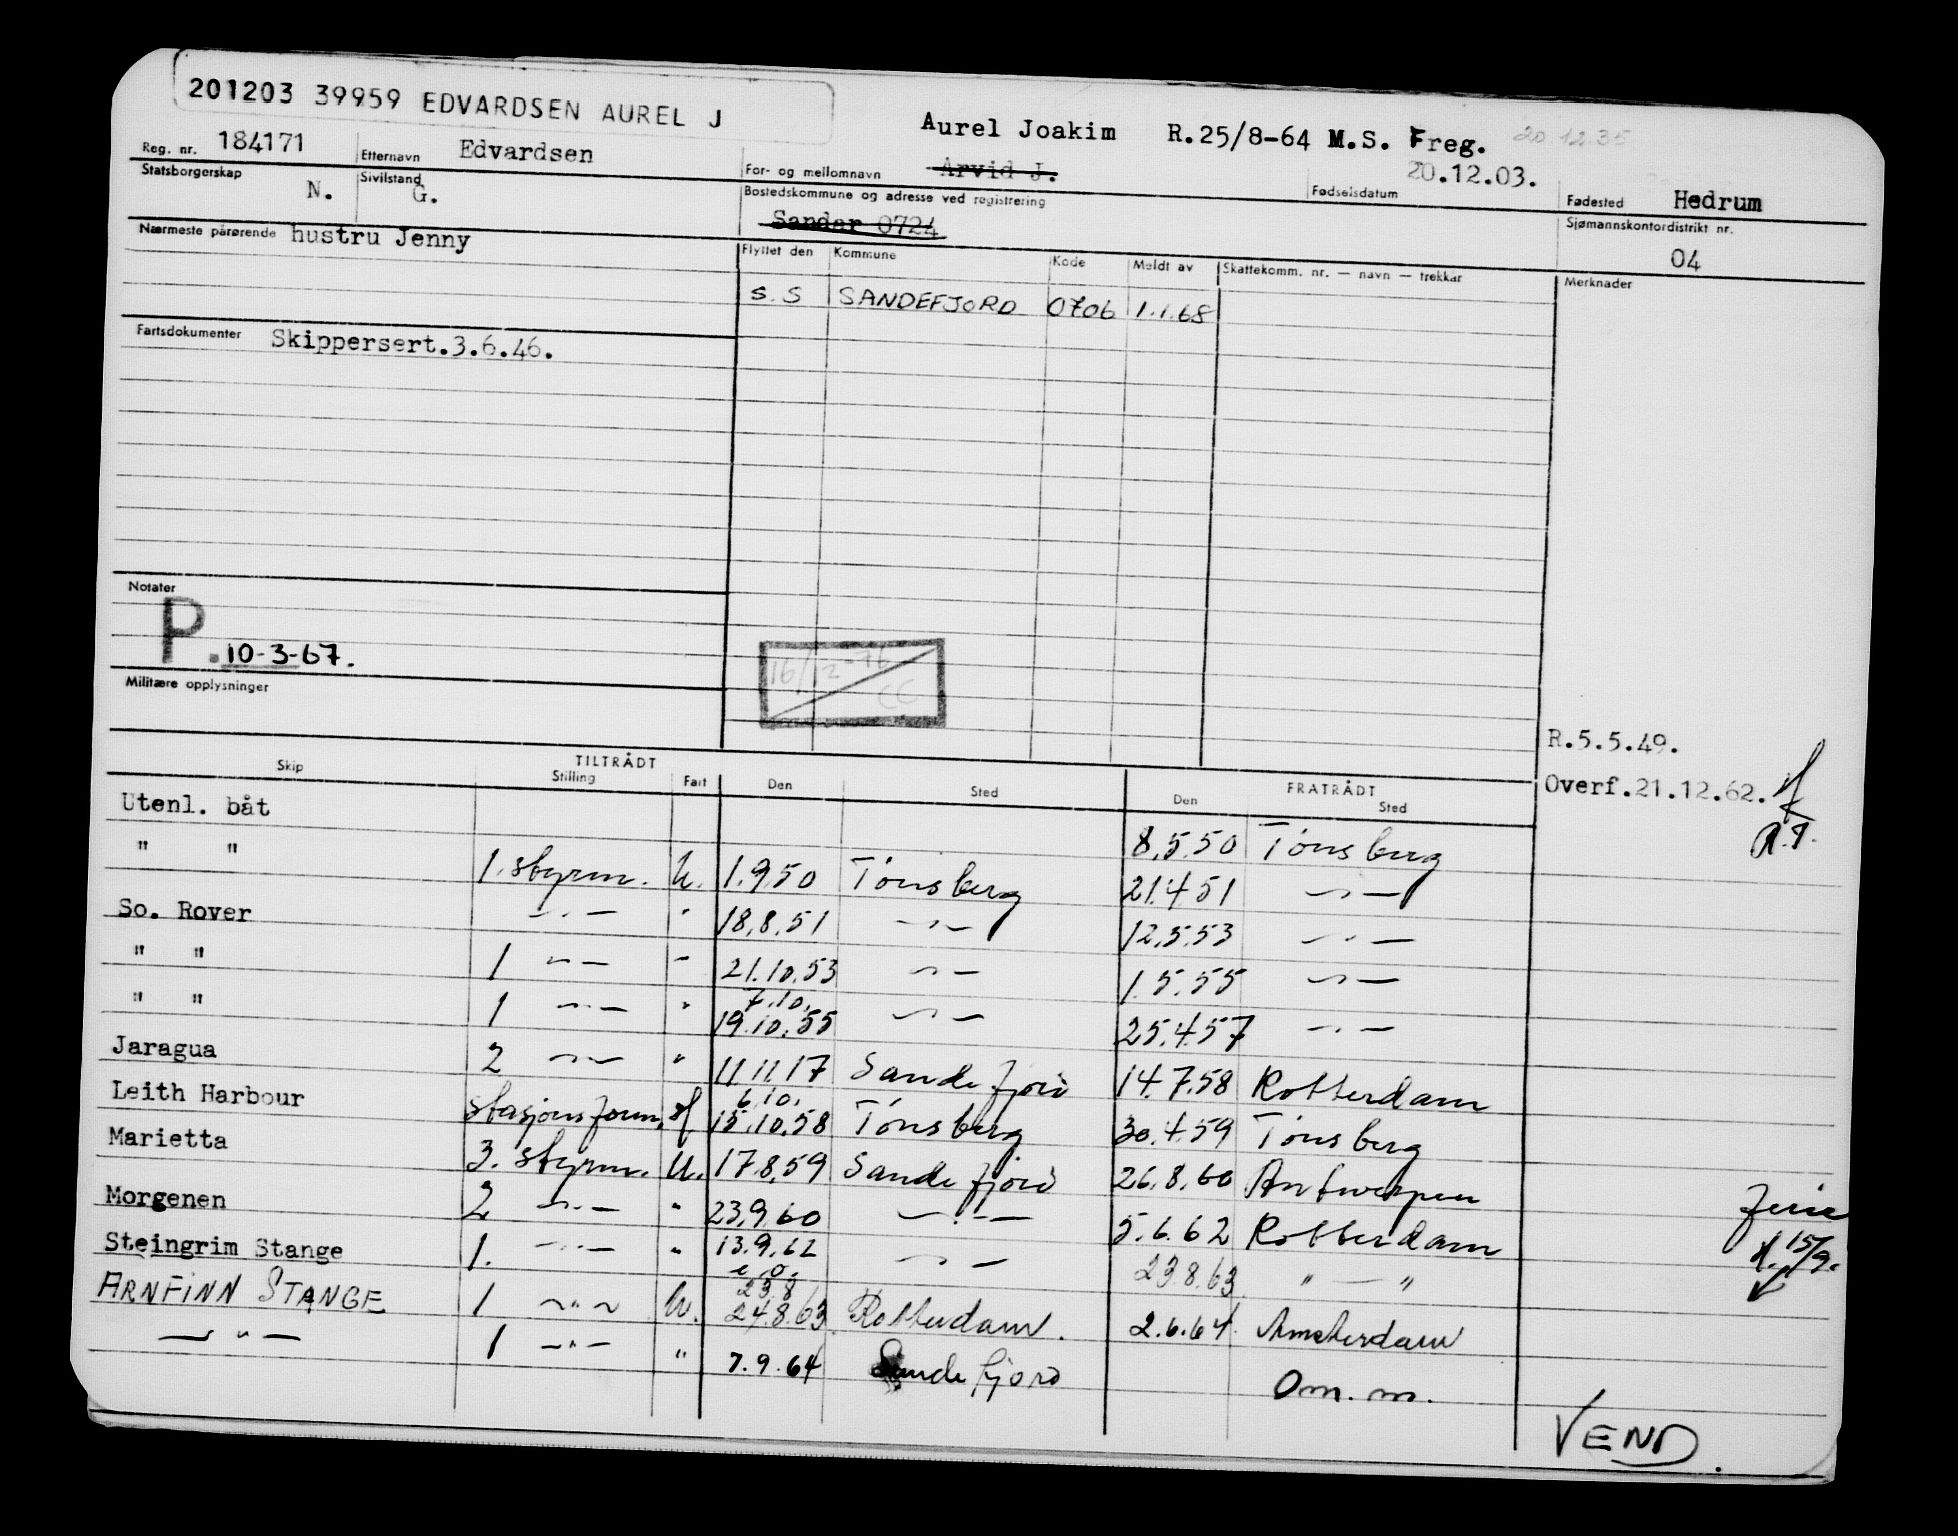 201203 39959 EDVARDSEN AUREL J
Aurel Joakim R.25/8-64 M.S. Freg. 20.12.35
Reg. nr. 184171 Etternavn Edvardsen For- og mellomnavn Arvid J. Fødselsdatum 20.12.03. Fødested Hedrum
Statsborgerskap N. Sivilstand G. Bostedskommune og adresse ved registrering Sandar 0724 Sjømannskontordistrikt nr. 04
Nærmeste pårørende hustru Jenny
Flyttet den Kommune Kode Meldt av Skattekomm. nr. — navn — trekkar Merknader
S.S SANDEFJORD 0706 1.1.68
Fartsdokumenter Skippersert.3.6.46.
Notater
P. 10-3-67.
16/12-76
CC
Militære opplysninger
R.5.5.49.
Overf.21.12.62.
R.T.
TILTRÅDT FRATRÅDT
Skip Stilling Fart Den Sted Den Sted
Utenl. båt 8.5.50 Tønsberg
" " 1. styrm. U. 1.9.50 Tønsberg 21.4.51 — " —
So. Rover — " — " 18.8.51 — " — 12.5.53 — " —
" " 1 — " — " 21.10.53 — " — 1.5.55 — " —
7.10.
" " 1 — " — " 19.10.55 — " — 25.4.57 — " —
Jaragua 2 — " — " 11.11.17 Sandefjord 14.7.58 Rotterdam
6.10.
Leith Harbour stasjonsform. 15.10.58 Tønsberg 30.4.59 Tønsberg
Marietta 3. styrm. U. 17.8.59 Sandefjord 26.8.60 Antwerpen
Morgenen 2 — " — " 23.9.60 — " — 5.6.62 Rotterdam
Ferie
15/9.
Steingrim Stange 1. — " — " 13.9.62 — " — 23.8.63 " — "
e.o.
23.8
ARNFINN STANGE 1 — " — U. 24.8.63 Rotterdam. 2.6.64. Amsterdam
— " — 1 — " — " 7.9.64 Sandefjord Om. m.
VEND.